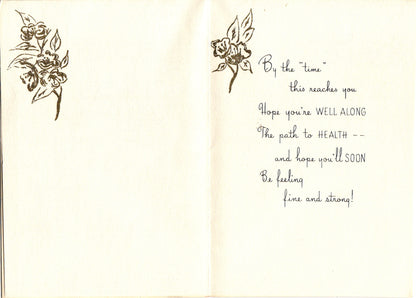 By the "time"
this reaches you
Hope you're WELL ALONG
The path to HEALTH --
and hope you'll SOON
Be feeling
fine and strong!